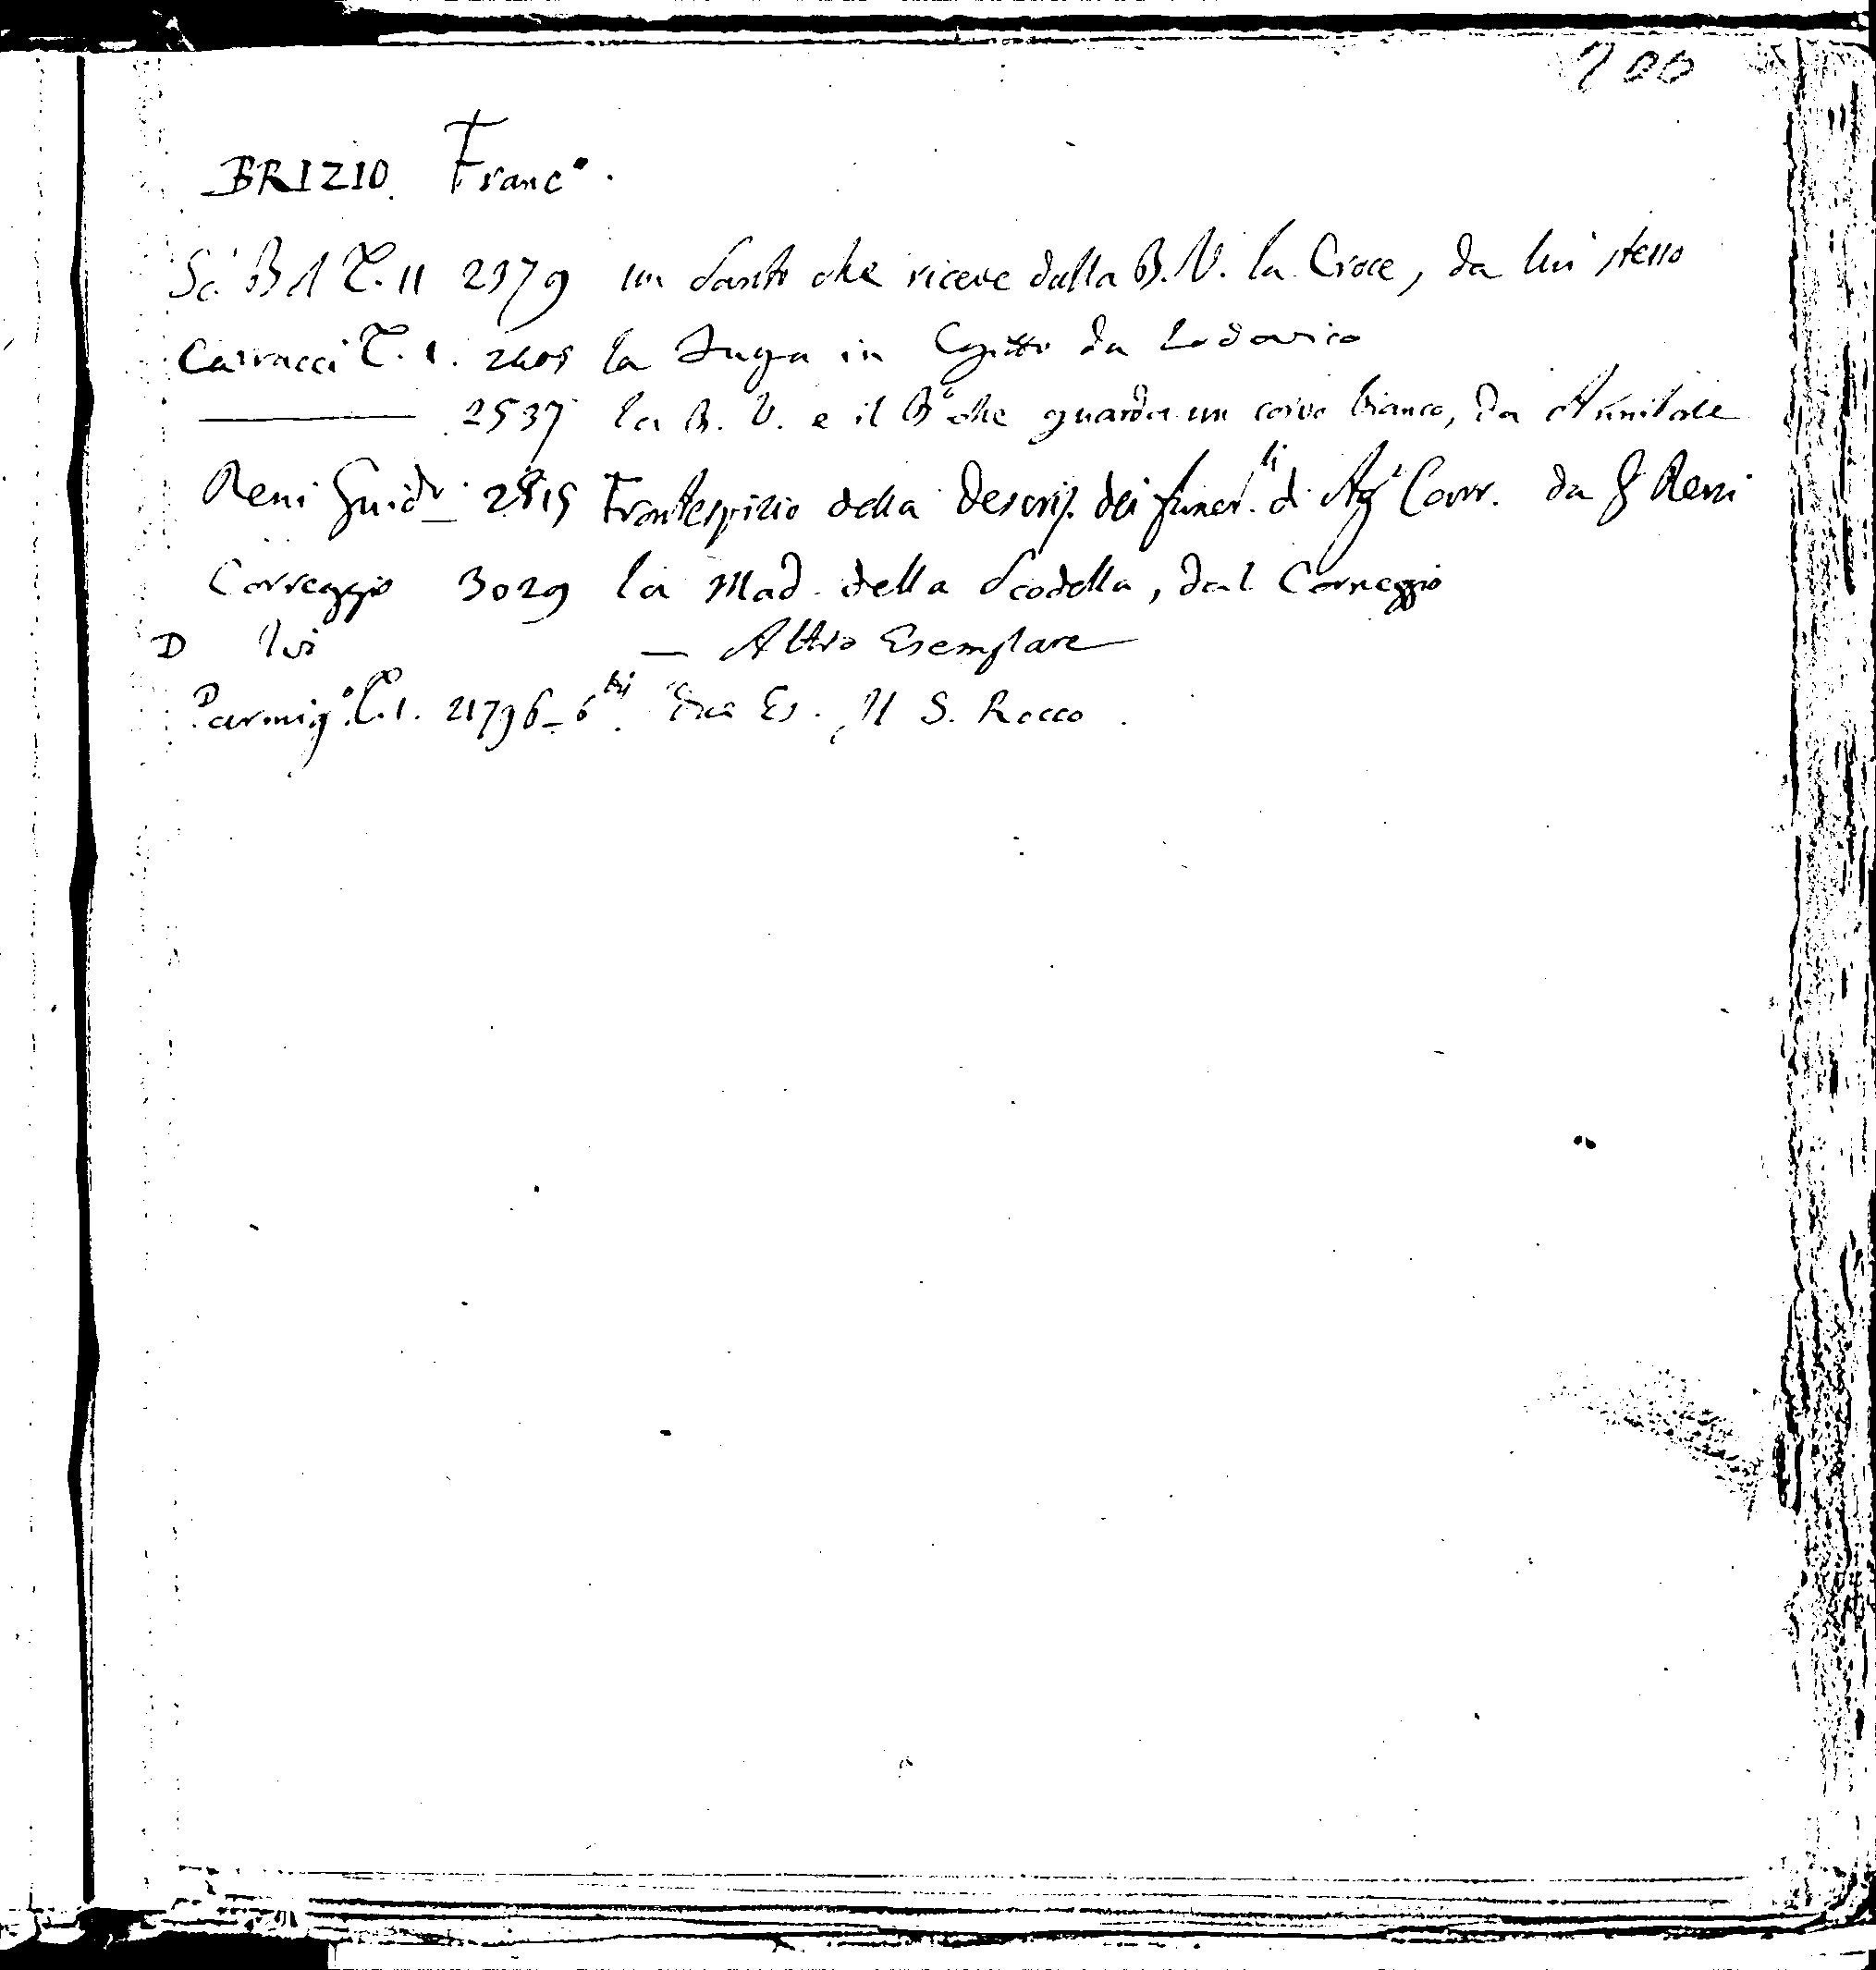 700
BRIZIO Franc.º
Sc. Bol T. II 2379 un Santo che riceve dalla B. V. la Croce, da lui stesso
Carracci T. 1. 2405 la Fuga in Egitto da Lodovico
——— 2537 la B. V. e il Bº che guarda un corvo bianco, da Annibale
Reni Guido 2815 Frontespizio della Descriz. dei funer.li di Agº Carr. da G Reni
Correggio 3029 la Mad. della Scodella, dal Correggio
D Ivi — Altro Esemplare
Parmigº. T. 1. 21796_6 bis. Due Es. Il S. Rocco.